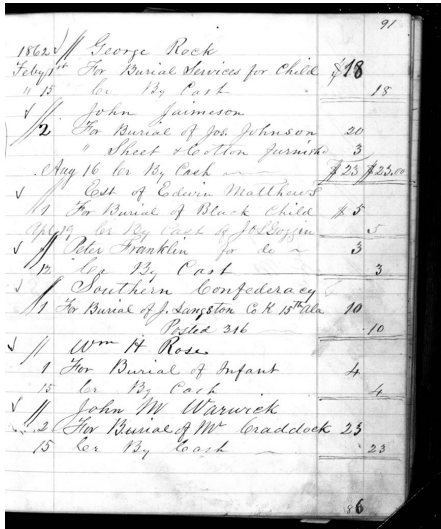 91
1862 George Rock
Feby 1st For Burial Services for Child $18
" 15 Cr By Cash 18
John Jaimeson
2 For Burial of Jos. Johnson 20
" Sheet & Cotton furnishd 3
Aug 16 Cr By Cash $23 $23.00
Est of Edwin Matthews
1 For Burial of Black Child $5
Apl 19 Cr By Cash 5
Peter Franklin for do 3
12 Cr By Cash 3
Southern Confederacy
1 For Burial of J. Langston Co K 15th Ala 10
Posted 316 10
Wm H Rose
1 For Burial of Infant 4
15 Cr By Cash 4
John M Warwick
2 For Burial of Mr Craddock 23
15 Cr By Cash 23
86